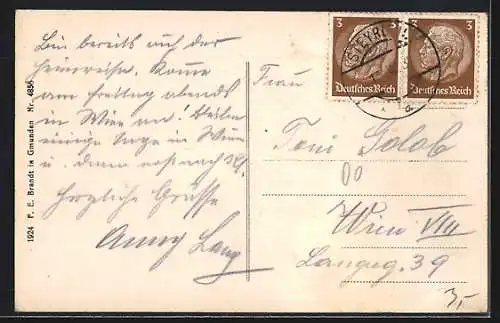 Bin bereits auf der
Heimreise. Komme
am Freitag abends
in Wien an! Bleibe
einige Tage in Wien
u. dann erst nach
Herzliche Grüsse
Anny Lang
1924 F. E. Brandt in Gmunden Nr. 4836
3 3
Deutsches Reich Deutsches Reich
Frau
Toni Golob
Wien VIII
Langeg. 39